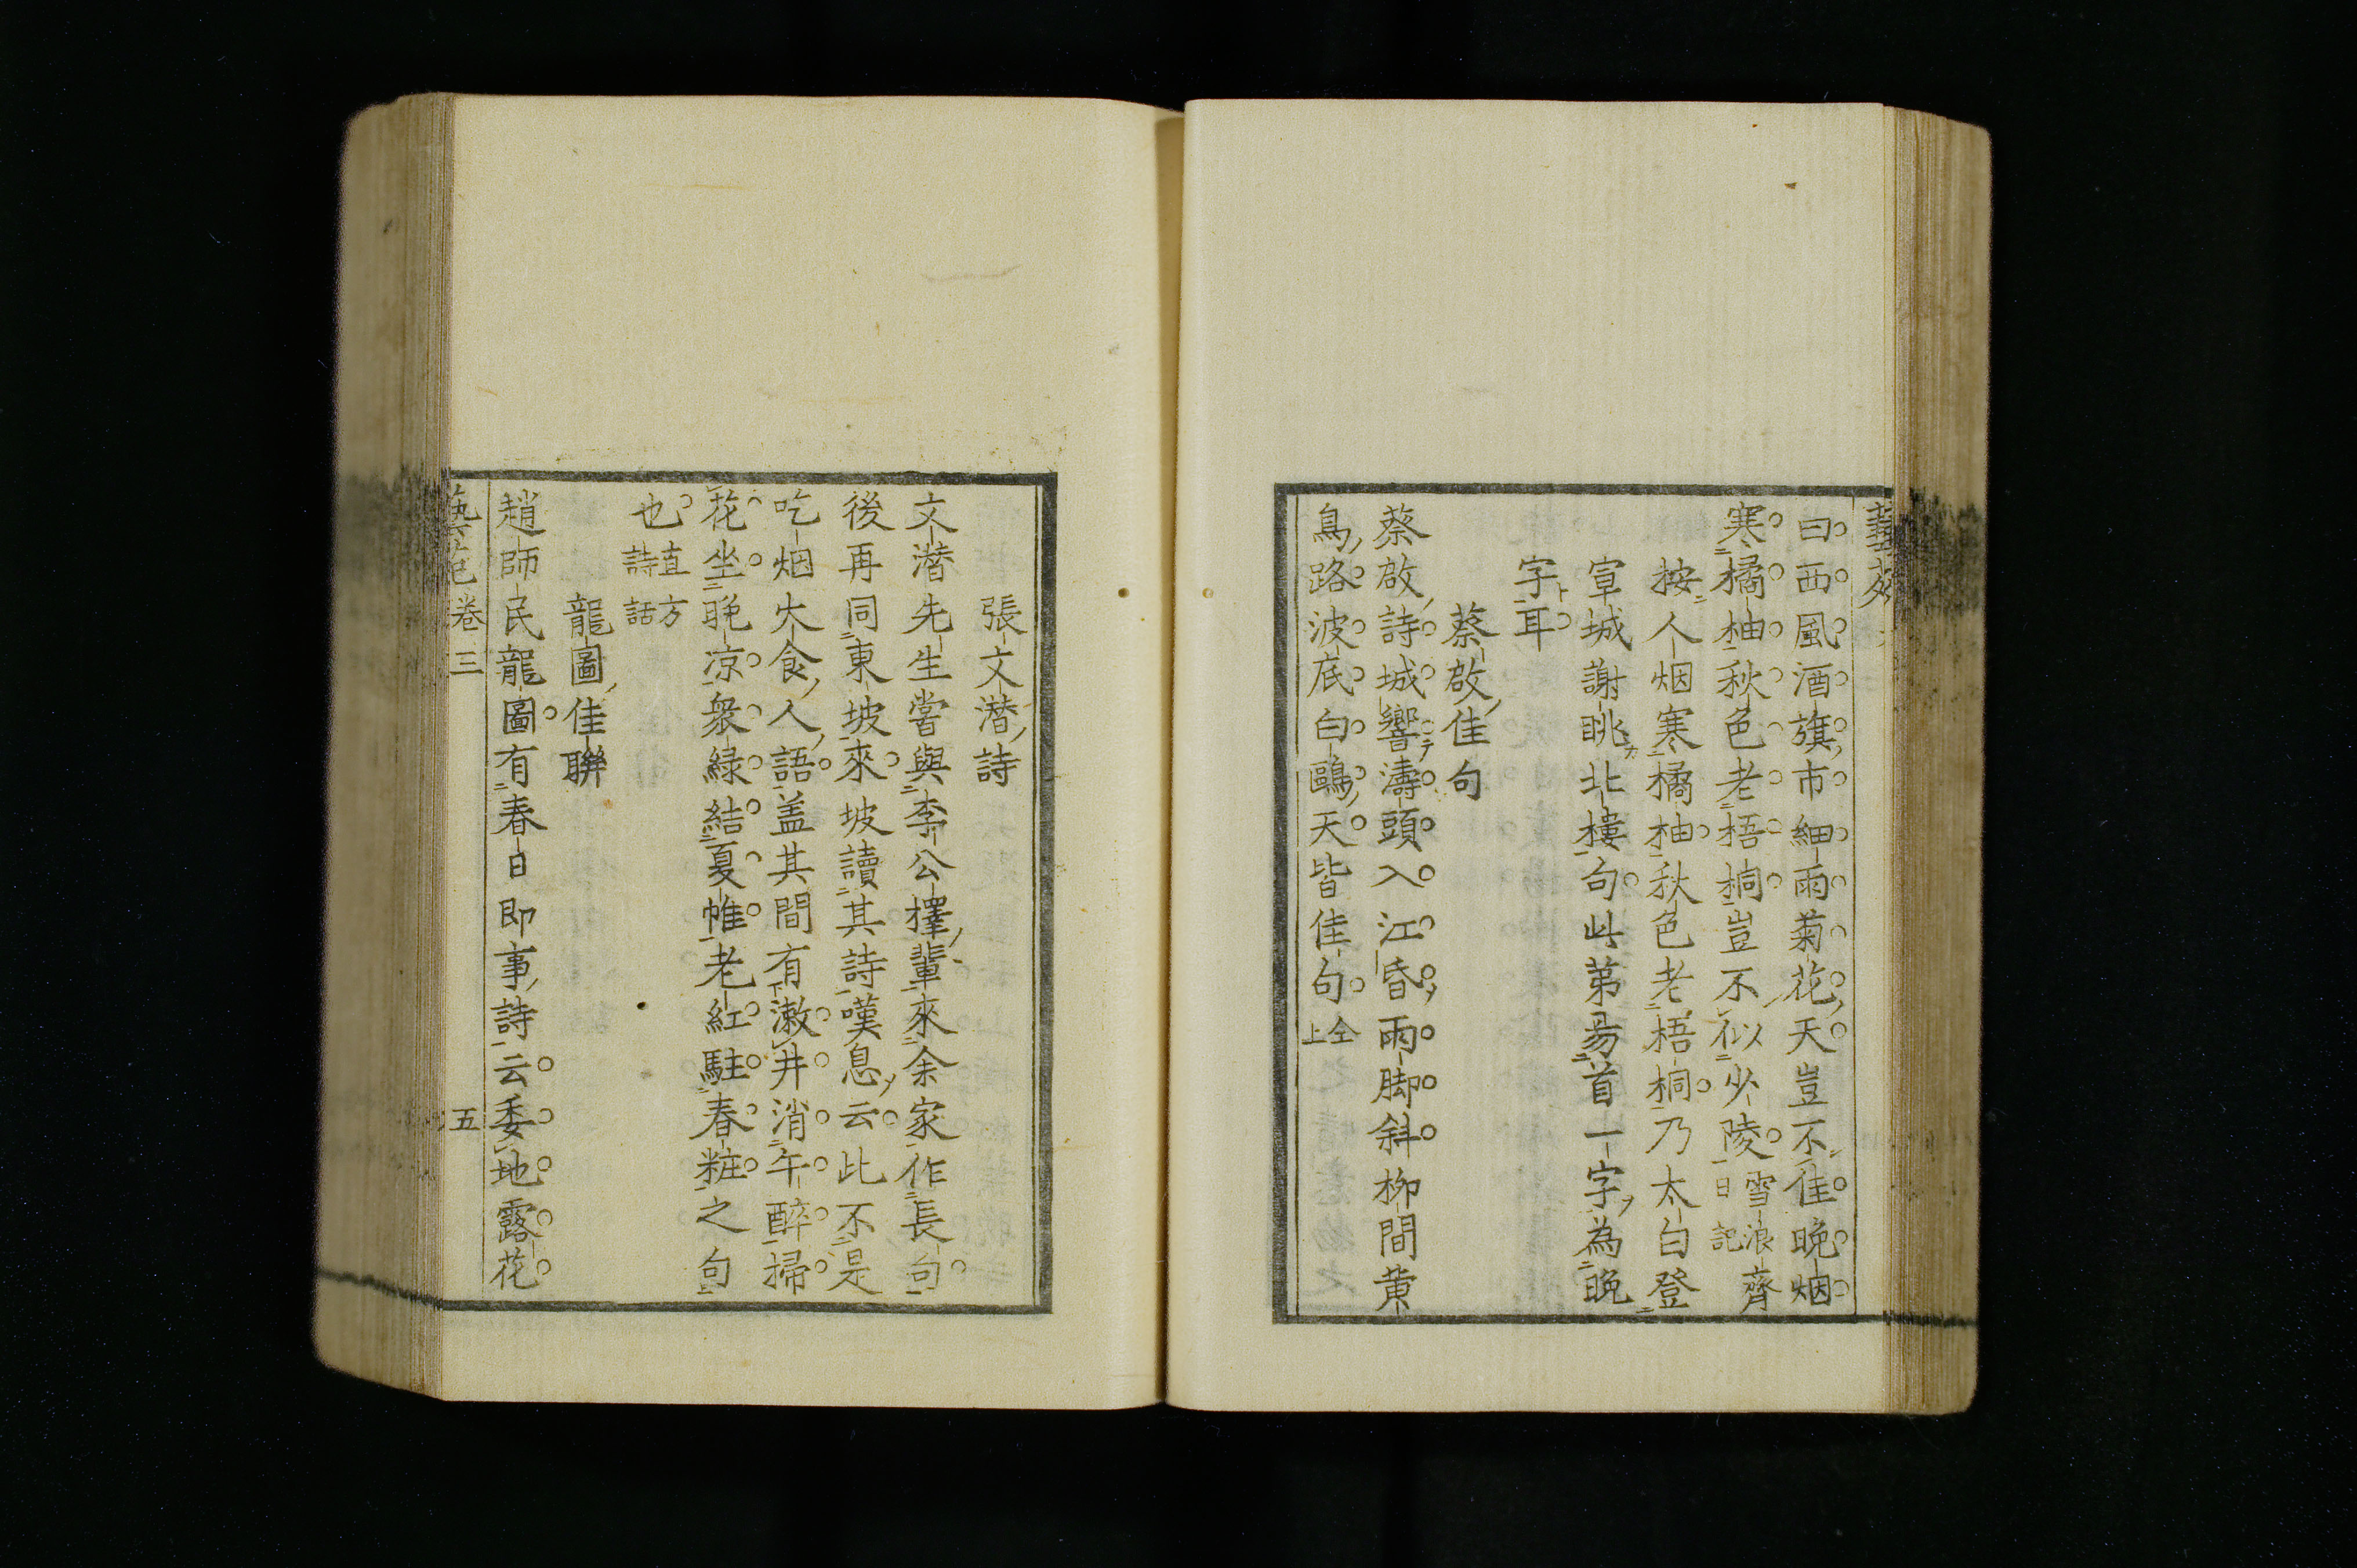 曰西風酒旗市細雨菊花天豈不佳晚烟
寒橘柚秋色老梧桐豈不似少陵雪浪齊日記
按人烟寒橘柚秋色老梧桐乃太白登
宣城謝眺北樓句此第昜首一字為晚
字耳
蔡啟佳句
蔡啟詩城響濤頭入江昏雨脚斜柳間黄
鳥路波底白鷗天皆佳句仝上
張文潜詩
文潜先生嘗與李公擇輩來余家作長句
後再同東坡來坡讀其詩嘆息云此不是
吃烟火食人語盖其間有漱井消午醉掃
花坐晚凉衆緑結夏帷老紅駐春粧之句
也直方詩話
龍圖佳聯
趙師民龍圖有春日即事詩云委地露花
卷三 五